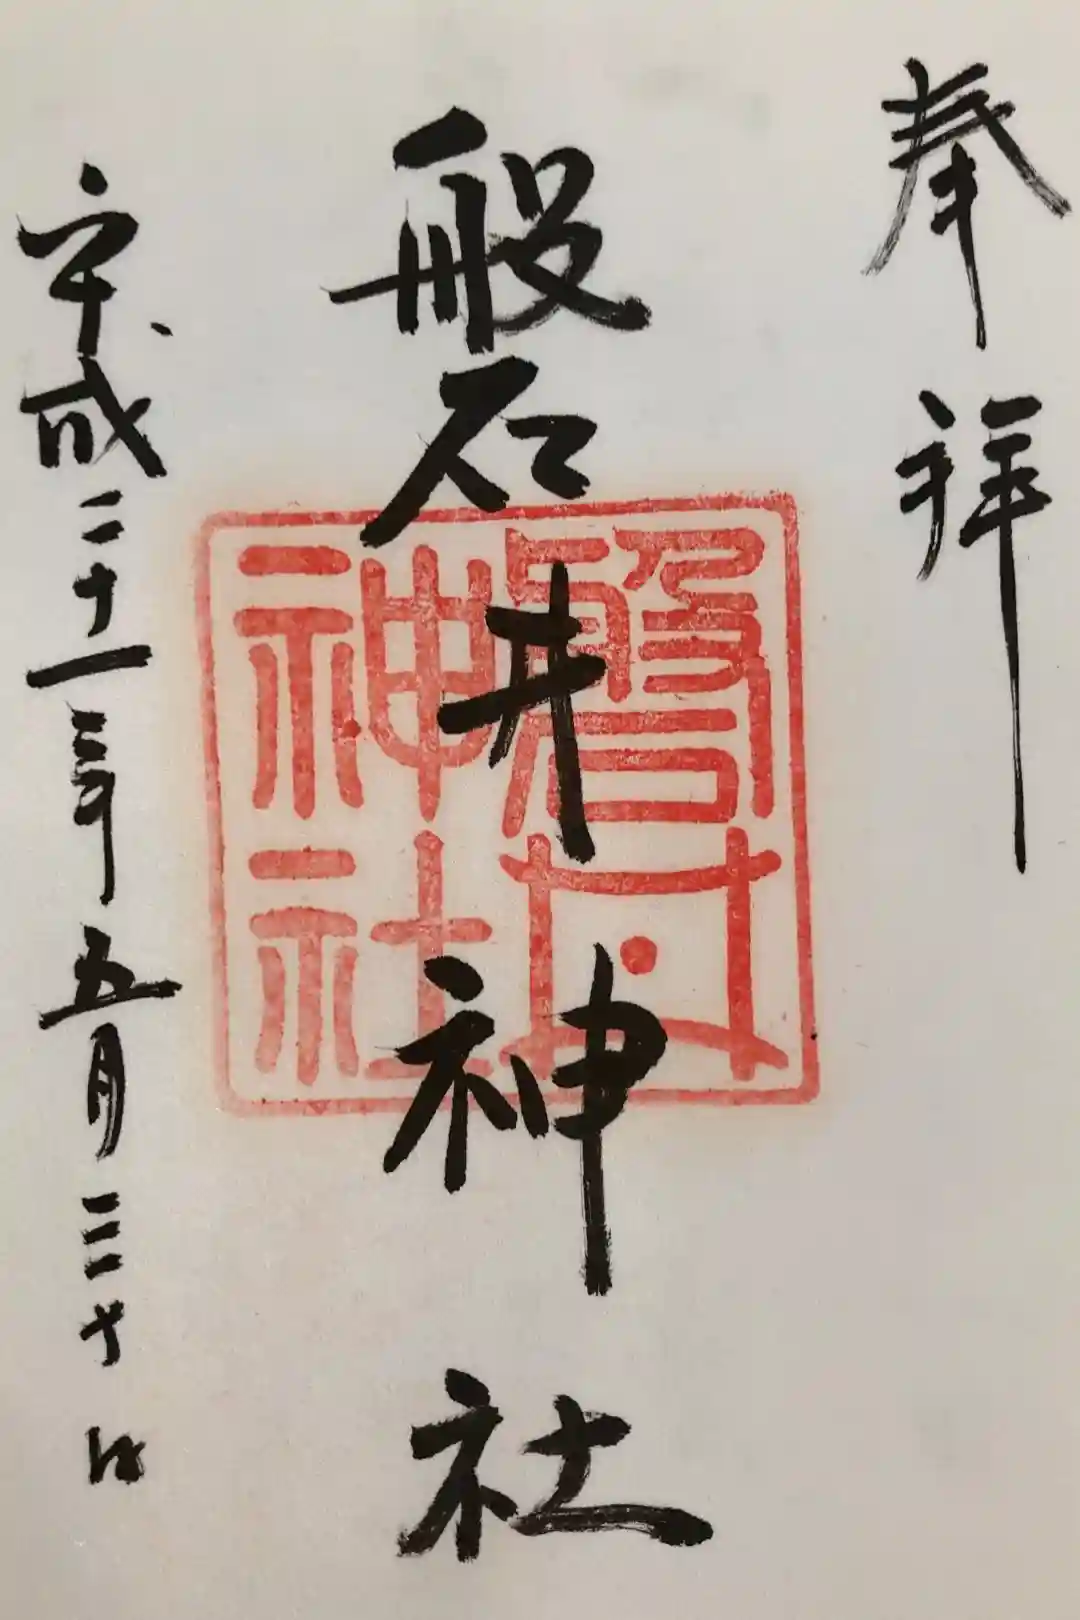 奉拝
磐井神社
平成二十一年五月三十日
磐井
神社